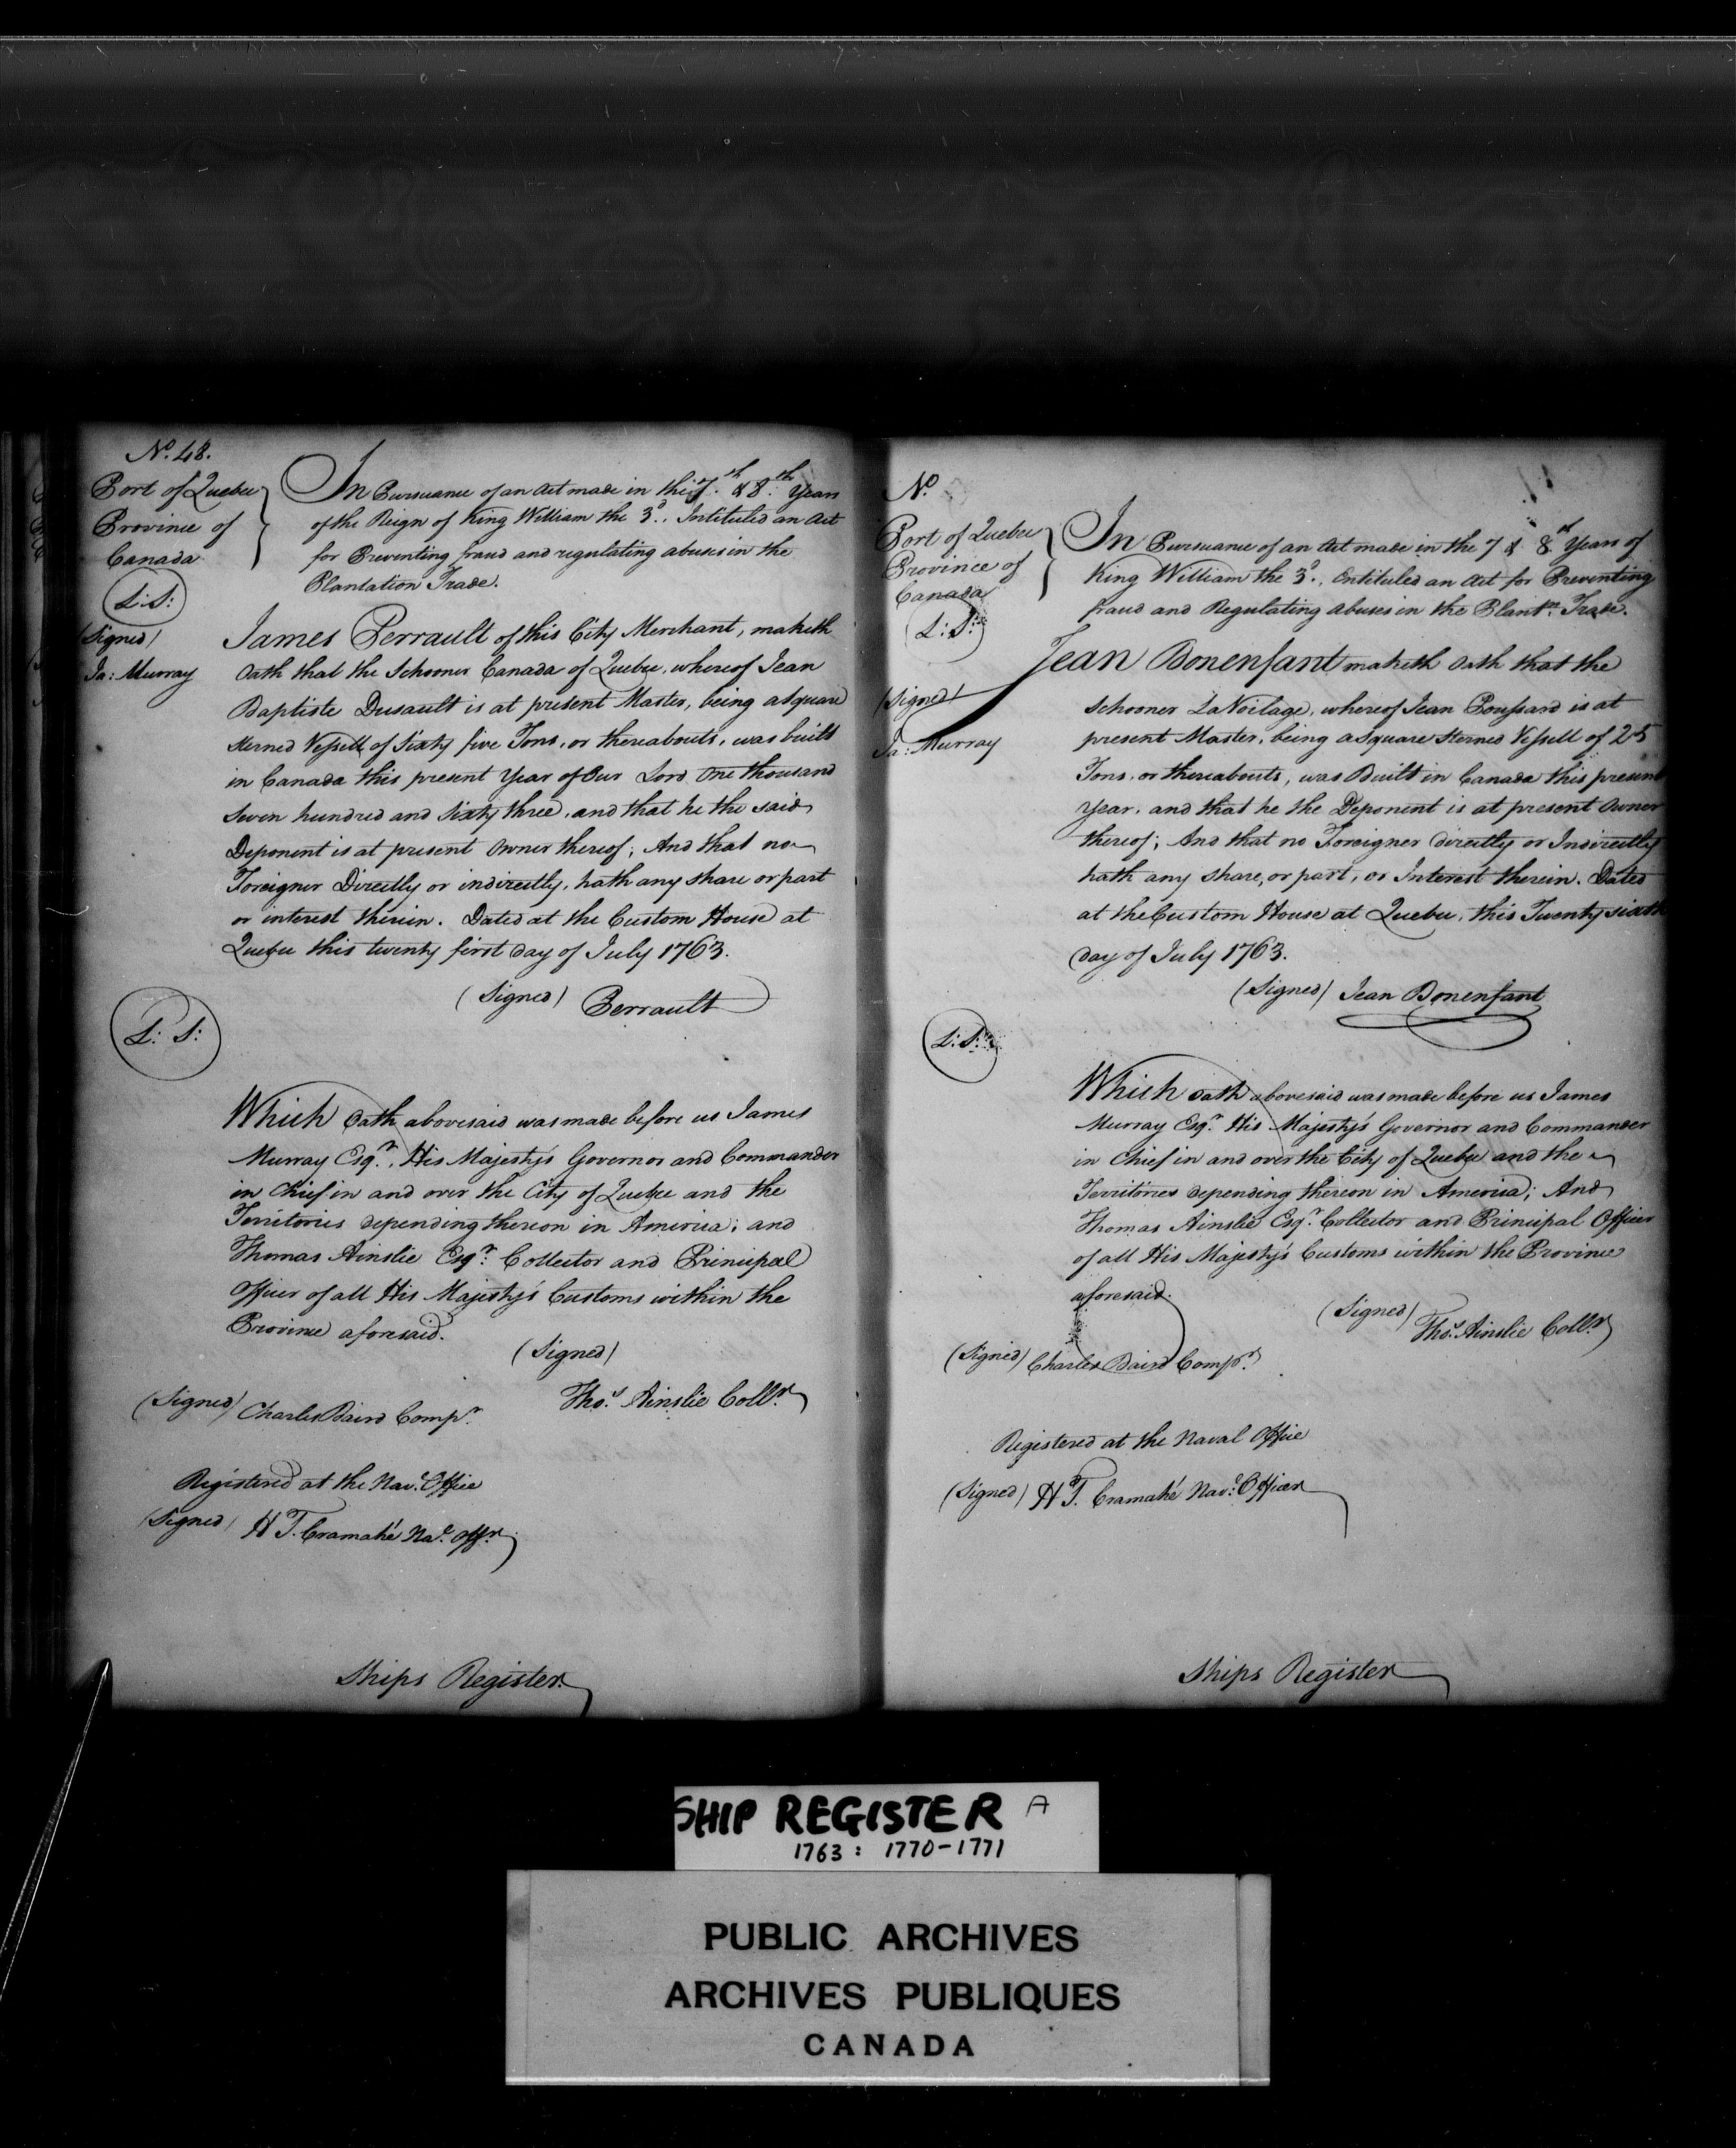 No. 48.
Port of Quebec
Province of
Canada
L: S:
(Signed)
Ja: Murray
In Pursuance of an Act made in the 7th. & 8th. Years
of the Reign of King William the 3d., Intituled an Act
for Preventing fraud and regulating abuses in the
Plantation Trade.
James Perrault of this City Merchant, maketh
Oath that the Schooner Canada of Quebec, whereof Jean
Baptiste Dusault is at present Master, being a Square
sterned Vessell of Sixty five Tons, or thereabouts, was built
in Canada this present Year of Our Lord One thousand
Seven hundred and Sixty three, and that he the said
Deponent is at present Owner thereof; And that no
Foreigner Directly or indirectly, hath any share or part
or interest therein. Dated at the Custom House at
Quebec this twenty first day of July 1763.
(Signed) Perrault
L: S:
Which Oath abovesaid was made before us James
Murray Esqr., His Majesty's Governor and Commander
in Chief in and over the City of Quebec and the
Territories depending thereon in America; and
Thomas Ainslie Esqr. Collector and Principal
Officer of all His Majesty's Customs within the
Province aforesaid.
(Signed)
Thos. Ainslie Collr.
(Signed) Charles Baird Compr.
Registered at the Navl. Office
(Signed) H T. Cramahé Nal. Offr.
Ships Register.
No.
Port of Quebec
Province of
Canada
L: S:
(Signed)
Ja: Murray
In Pursuance of an Act made in the 7 & 8th Years of
King William the 3d., Entituled an Act for Preventing
fraud and Regulating abuses in the Plantn. Trade.
Jean Bonenfant maketh Oath that the
Schooner LaVoilage, whereof Jean Poussard is at
present Master, being a Square Sterned Vessell of 25
Tons, or thereabouts, was Built in Canada this present
Year, and that he the Deponent is at present Owner
thereof; And that no Foreigner directly or Indirectly
hath any Share, or part, or Interest therein. Dated
at the Custom House at Quebec, this Twenty sixth
day of July 1763.
(Signed) Jean Bonenfant
L: S:
Which Oath abovesaid was made before us James
Murray Esqr. His Majesty's Governor and Commander
in Chief in and over the City of Quebec and the
Territories depending thereon in America; And
Thomas Ainslie Esqr. Collector and Principal Officer
of all His Majesty's Customs within the Province
aforesaid.
(Signed)
Thos. Ainslie Collr.
(Signed) Charles Baird Compr.
Registered at the Naval Office
(Signed) H T. Cramahé Navl. Officer
Ships Register
SHIP REGISTER A
1763: 1770-1771
PUBLIC ARCHIVES
ARCHIVES PUBLIQUES
CANADA